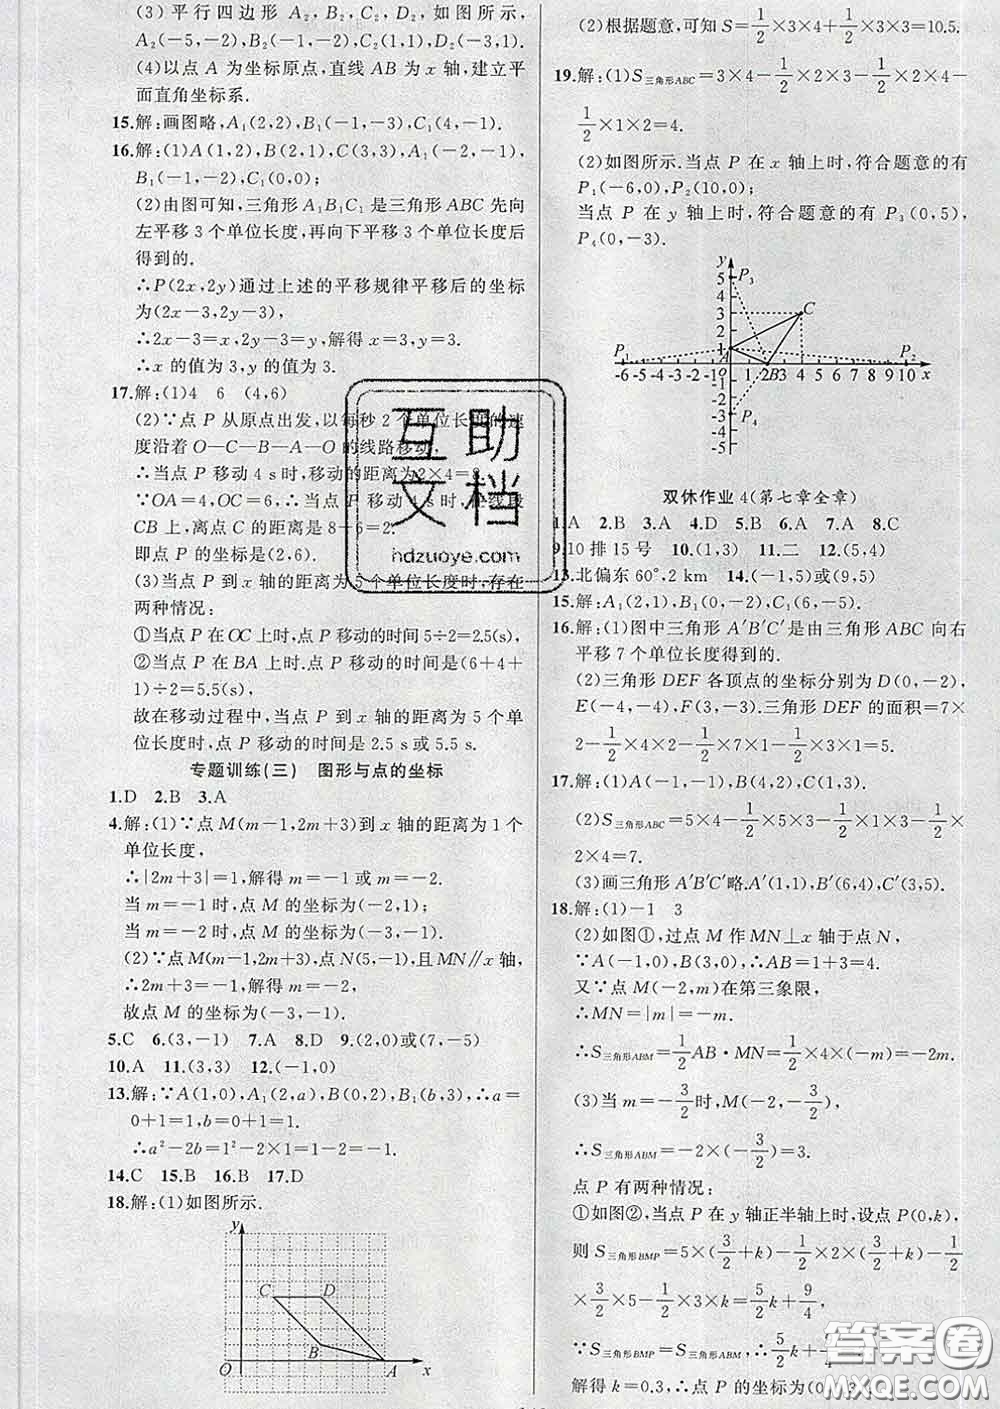 (3)平行四边形 A₂B₂C₂D₂ 如图所示,
A₂(-5,-2),B₂(-3,-1),C₂(1,-1),D₂(-3,1).
(4)以点 A 为坐标原点,直线 AB 为 x 轴,建立平
面直角坐标系.
15.解:画图略,A₁(2,2),B₁(-1,-3),C₁(4,-1).
16.解:(1)A(1,2),B(2,1),C(3,3),A₁(-2,-1),
B₁(-1,-2),C₁(0,0);
(2)由图可知,三角形 A₁B₁C₁ 是三角形 ABC 先向
左平移 3 个单位长度,再向下平移 3 个单位长度后
得到的.
∴P(2x,2y)通过上述的平移规律平移后的坐标
为(2x-3,2y-3),
∴2x-3=x,2y-3=y,解得 x=3,y=3.
∴x 的值为 3,y 的值为 3.
17.解:(1)4 6 (4,6)
(2)∵点 P 从原点出发,以每秒 2 个单位长度的速
度沿着 O—C—B—A—O 的线路移动,
∴当点 P 移动 4 s 时,移动的距离为2×4=8.
∵OA=4,OC=6,∴当点 P 移动 4 s 时,在线段
CB 上,离点 C 的距离为 8-6=2.
即点 P 的坐标是(2,6).
(3)当点 P 到 x 轴的距离为 5 个单位长度时,存在
两种情况:
①当点 P 在 OC 上时,点 P 移动的时间 5÷2=2.5(s),
②当点 P 在 BA 上时.点 P 移动的时间是(6+4+
1)÷2=5.5(s),
故在移动过程中,当点 P 到 x 轴的距离为 5 个单
位长度时,点 P 移动的时间是 2.5 s 或 5.5 s.
专题训练(三) 图形与点的坐标
1.D 2.B 3.A
4.解:(1)∵点 M(m-1,2m+3)到 x 轴的距离为 1 个
单位长度,
∴|2m+3|=1,解得 m=-1 或 m=-2.
当 m=-1 时,点 M 的坐标为(-2,1);
当 m=-2 时,点 M 的坐标为(-3,-1).
(2)∵点 M(m-1,2m+3),点 N(5,-1),且MN∥x 轴,
∴2m+3=-1,解得 m=-2,
故点 M 的坐标为(-3,-1).
5.C 6.(3,-1) 7.A 8.D 9.(2,0)或(7,-5)
10.A 11.(3,3) 12.(-1,0)
13.解:∵A(1,0),A₁(2,a),B(0,2),B₁(b,3),∴a=
0+1=1,b=0+1=1.
∴a²-2b=1²-2×1=1-2=-1.
14.C 15.B 16.B 17.D
18.解:(1)如图所示.
y
C D
B
O A x
(2)根据题意,可知 S=1/2×3×4+1/2×3×3=10.5.
19.解:(1)S三角形ABC=3×4-1/2×2×3-1/2×2×4-
1/2×1×2=4.
(2)如图所示.当点 P 在 x 轴上时,符合题意的有
P₁(-6,0),P₂(10,0);
当点 P 在 y 轴上时,符合题意的有 P₃(0,5),
P₄(0,-3).
y
5 P₃
4
3 C
2
P₁ 1 A B P₂
-6 -5 -4 -3 -2 -1 0 1 2 3 4 5 6 7 8 9 10 x
-1
-2
-3 P₄
-4
-5
双休作业 4(第七章全章)
1.A 2.B 3.A 4.D 5.B 6.A 7.A 8.C
9.10 排 15 号 10.(1,3) 11.二 12.(5,4)
13.北偏东 60°,2 km 14.(-1,5)或(9,5)
15.解:A₁(2,1),B₁(0,-2),C₁(6,-5).
16.解:(1)图中三角形 A′B′C′是由三角形 ABC 向右
平移 7 个单位长度得到的.
(2)三角形 DEF 各顶点的坐标分别为 D(0,-2),
E(-4,-4),F(3,-3).三角形 DEF 的面积=7×
2-1/2×4×2-1/2×7×1-1/2×3×1=5.
17.解:(1)A(-1,-1),B(4,2),C(1,3).
(2)S三角形ABC=5×4-1/2×5×3-1/2×3×1-1/2×
2×4=7.
(3)画三角形 A′B′C′略.A′(1,1),B′(6,4),C′(3,5).
18.解:(1)-1 3
(2)如图①,过点 M 作 MN⊥x 轴于点 N,
∵A(-1,0),B(3,0),∴AB=1+3=4.
又∵点 M(-2,m)在第三象限,
∴MN=|m|=-m.
∴S三角形ABM=1/2AB·MN=1/2×4×(-m)=-2m.
(3)当 m=-3/2时,M(-2,-3/2),
∴S三角形ABM=-2×(-3/2)=3.
点 P 有两种情况:
①如图②,当点 P 在 y 轴正半轴上时,设点 P(0,k),
则 S三角形BMP=5×(3/2+k)-1/2×2×(3/2+k)-1/2
×3/2×5-1/2×3×k=5/2k+9/4,
∵S三角形BMP=S三角形ABM,∴5/2k+9/4=3.
解得 k=0.3,∴点 P 的坐标为(0,0.3).
互助文档
hdzuoye.com
答案圈
MXQE.COM